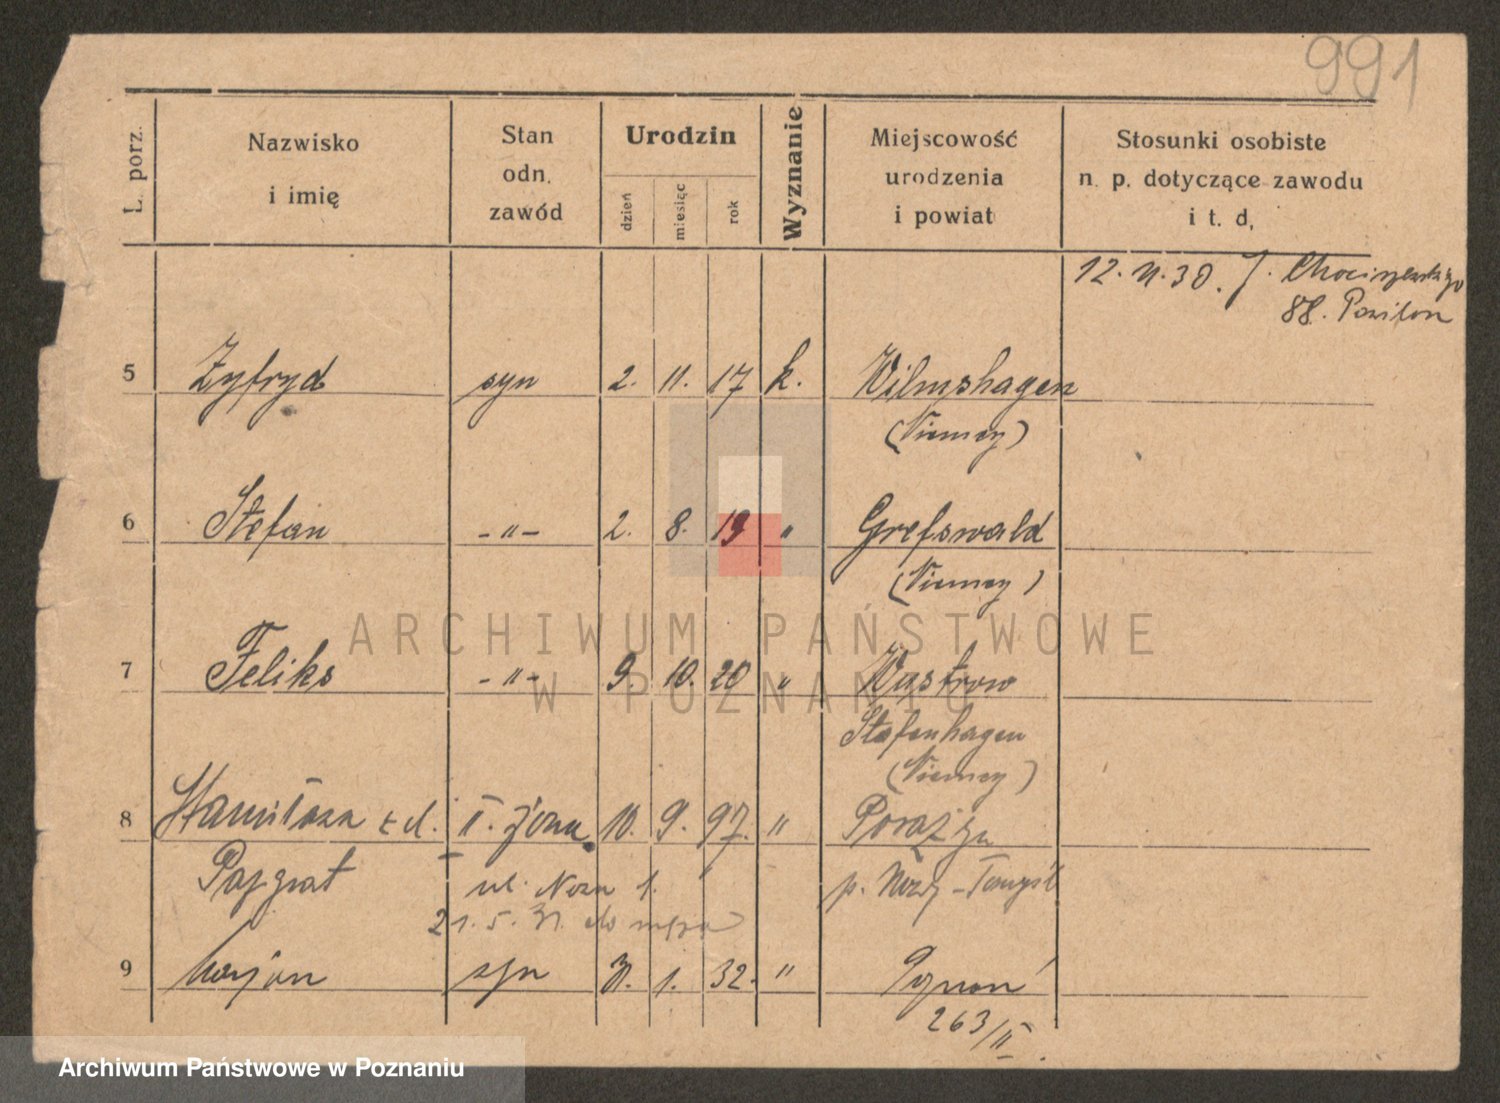 991
L. porz.
Nazwisko
i imię
Stan
odn.
zawód
Urodzin
dzień
miesiąc
rok
Wyznanie
Miejscowość
urodzenia
i powiat
Stosunki osobiste
n. p. dotyczące zawodu
i t. d,
12. 11. 30. J. Chociszewskiego
88. Pawilon
5 Zyfryd syn 2. 11. 17 k. Wilmshagen
(Niemcy)
6 Stefan -"- 2. 8. 19 " Grefswald
(Niemcy)
7 Feliks -"- 9. 10. 20 " Wustrow
Stafenhagen
(Niemcy)
8 Stanisława z d. II. żona 10. 9. 97. "
Pajzrat ul. 1. p. Nowy-Tomyśl
21. 5. 31. do męża
9 Marjan syn 31. 1. 32. " Poznań
263/II.
ARCHIWUM PAŃSTWOWE
W POZNANIU
Archiwum Państwowe w Poznaniu